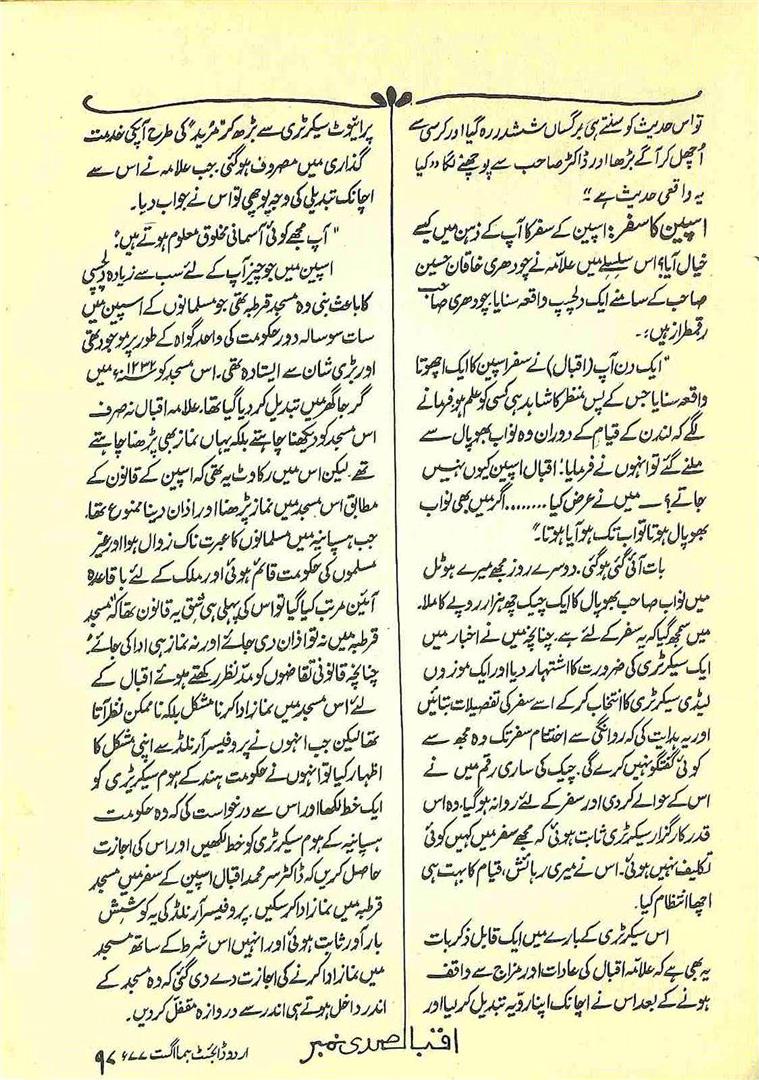 تو اس حدیث کو سنتے ہی برگساں ششدر رہ گیا اور کرسی سے
اُچھل کر آگے بڑھا اور ڈاکٹر صاحب سے پوچھنے لگا "کیا
یہ واقعی حدیث ہے"۔
اسپین کا سفر: اسپین کے سفر کا آپ کے ذہن میں کیسے
خیال آیا؟ اس سلسلے میں علامہ نے چودھری خاقان حسین
صاحب کے سامنے ایک دلچسپ واقعہ سنایا۔ چودھری صاحب
رقمطراز ہیں:۔
"ایک دن آپ (اقبال) نے سفر اسپین کا ایک اچھوتا
واقعہ سنایا جس کے پس منظر کا شاید ہی کسی کو علم ہو فرمانے
لگے کہ لندن کے قیام کے دوران وہ نواب بھوپال سے
ملنے گئے تو انہوں نے فرمایا: اقبال اسپین کیوں نہیں
جاتے؟ ۔ میں نے عرض کیا ........ اگر میں بھی نواب
بھوپال ہوتا تو اب تک ہو آیا ہوتا"۔
بات آئی گئی ہو گئی۔ دوسرے روز مجھے میرے ہوٹل
میں نواب صاحب بھوپال کا ایک چیک چھ ہزار روپے کا ملا۔
میں سمجھ گیا کہ یہ سفر کے لئے ہے۔ چنانچہ میں نے اخبار میں
ایک سیکرٹری کی ضرورت کا اشتہار دیا اور ایک موزوں
لیڈی سیکرٹری کا انتخاب کر کے اسے سفر کی تفصیلات بتائیں
اور یہ ہدایت کی کہ روانگی سے اختتام سفر تک وہ مجھ سے
کوئی گفتگو نہیں کرے گی۔ چیک کی ساری رقم میں نے
اس کے حوالے کر دی اور سفر کے لئے روانہ ہو گیا۔ وہ اس
قدر کارگزار سیکرٹری ثابت ہوئی کہ مجھے سفر میں کہیں کوئی
تکلیف نہیں ہوئی۔ اس نے میری رہائش، قیام کا بہت ہی
اچھا انتظام کیا۔
اس سیکرٹری کے بارے میں ایک قابل ذکر بات
یہ بھی ہے کہ علامہ اقبال کی عادات اور مزاج سے واقف
ہونے کے بعد اس نے اچانک اپنا رویہ تبدیل کر لیا اور
پرائیوٹ سیکرٹری سے بڑھ کر "مُرید" کی طرح آپکی خدمت
گذاری میں مصروف ہو گئی۔ جب علامہ نے اس سے
اچانک تبدیلی کی وجہ پوچھی تو اس نے جواب دیا۔
"آپ مجھے کوئی آسمانی مخلوق معلوم ہوتے ہیں"۔
اسپین میں جو چیز آپ کے لئے سب سے زیادہ دلچسپی
کا باعث بنی وہ مسجد قرطبہ تھی، جو مسلمانوں کے اسپین میں
سات سو سالہ دور حکومت کی واحد گواہ کے طور پر موجود تھی
اور بڑی شان سے ایستادہ تھی۔ اس مسجد کو سنہ ۱۲۳۲ء میں
گرجا گھر میں تبدیل کر دیا گیا تھا۔ علامہ اقبال نہ صرف
اس مسجد کو دیکھنا چاہتے بلکہ یہاں نماز بھی پڑھنا چاہتے
تھے۔ لیکن اس میں رکاوٹ یہ تھی کہ اسپین کے قانون کے
مطابق اس مسجد میں نماز پڑھنا اور اذان دینا ممنوع تھا۔
جب ہسپانیہ میں مسلمانوں کا عبرت ناک زوال ہوا اور غیر
مسلموں کی حکومت قائم ہوئی اور ملک کے لئے باقاعدہ
آئین مرتب کیا گیا تو اس کی پہلی ہی شق یہ قانون تھا کہ "مسجد
قرطبہ میں نہ تو اذان دی جائے اور نہ نماز ہی ادا کی جائے"۔
چنانچہ قانونی تقاضوں کو مدّنظر رکھتے ہوئے اقبال کے
لئے اس مسجد میں نماز ادا کرنا مشکل بلکہ ناممکن نظر آتا
تھا لیکن جب انہوں نے پروفیسر آرنلڈ سے اپنی مشکل کا
اظہار کیا تو انہوں نے حکومت ہند کے ہوم سیکرٹری کو
ایک خط لکھا اور اس سے درخواست کی کہ وہ حکومت
ہسپانیہ کے ہوم سیکرٹری کو خط لکھیں اور اس کی اجازت
حاصل کریں کہ ڈاکٹر سر محمد اقبال اسپین کے سفر میں مسجد
قرطبہ میں نماز ادا کر سکیں۔ پروفیسر آرنلڈ کی یہ کوشش
بار آور ثابت ہوئی اور انہیں اس شرط کے ساتھ مسجد
میں نماز ادا کرنے کی اجازت دے دی گئی کہ وہ مسجد کے
اندر داخل ہوتے ہی اندر سے دروازہ مقفّل کر دیں۔
اقبال صدی نمبر
اردو ڈائجسٹ ہما اگست ۷۷ء ۹۷